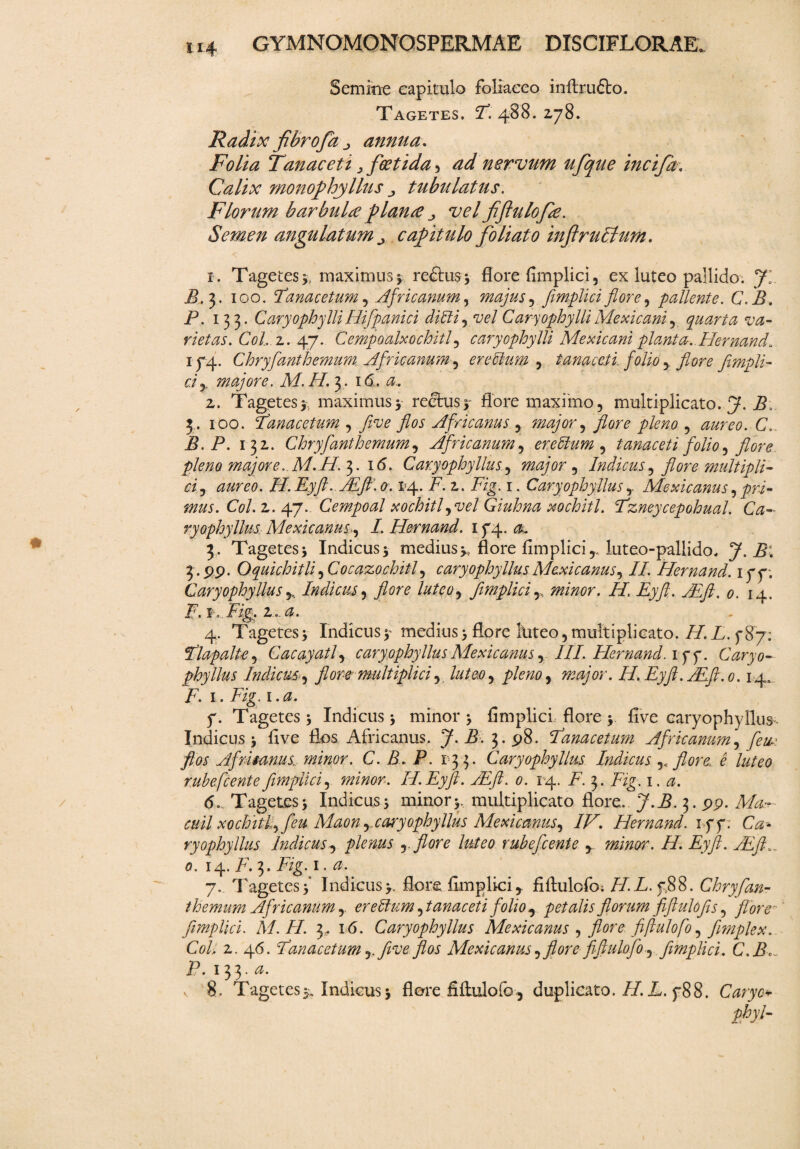 114 GYMNOMONOSPERMAE DISCIFLORAE.
Semine capitulo foliaceo inſtructo.
TAGETES. T. 488. 278.
Radix fibroſa, annua.
Folia Tanaceti, fœtida, ad nervum uſque inciſa.
Calix monophyllus, tubulatus.
Florum barbulæ planæ, vel fiſtuloſæ.
Semen angulatum, capitulo foliato inſtructum.
1. Tagetes; maximus; rectus; flore ſimplici, ex luteo pallido. J.
B. 3. 100. Tanacetum, Africanum, majus, ſimplici flore, pallente. C. B.
P. 133. Caryophylli Hiſpanici dicti, vel Caryophylli Mexicani, quarta va-
rietas. Col. 2. 47. Cempoalxochitl, caryophylli Mexicani planta. Hernand.
154. Chryſanthemum Africanum, erectum, tanaceti folio, flore ſimpli-
ci, majore. M. H. 3. 16. a.
2. Tagetes; maximus; rectus; flore maximo, multiplicato. J. B.
3. 100. Tanacetum, ſive flos Africanus, major, flore pleno, aureo. C.
B. P. 132. Chryſanthemum, Africanum, erectum, tanaceti folio, flore
pleno majore. M. H. 3. 16. Caryophyllus, major, Indicus, flore multipli-
ci, aureo. H. Eyſt. Æſt. o. 14. F. 2. Fig. 1. Caryophyllus, Mexicanus, pri-
mus. Col. 2. 47. Cempoal xochitl, vel Giuhna xochitl. Tzneycepohual. Ca-
ryophyllus Mexicanus, I. Hernand. 154. a.
3. Tagetes; Indicus; medius; flore ſimplici, luteo-pallido. J. B.
3. 99. Oquichitli, Cocazochitl, caryophyllus Mexicanus, II. Hernand. 155.
Caryophyllus, Indicus, flore luteo, ſimplici, minor. H. Eyſt. Æſt. o. 14.
F. 1. Fig. 2. a.
4. Tagetes; Indicus; medius; flore luteo, multiplicato. H. L. 587.
Tlapalte, Cacayatl, caryophyllus Mexicanus, III. Hernand. 155. Caryo-
phyllus Indicus, flore multiplici, luteo, pleno, major. H. Eyſt. Æſt. o. 14.
F. 1. Fig. 1. a.
5. Tagetes; Indicus; minor; ſimplici flore; ſive caryophyllus
Indicus; ſive flos Africanus. J. B. 3. 98. Tanacetum Africanum, ſeu
flos Africanus minor. C. B. P. 133. Caryophyllus Indicus, flore é luteo
rubeſcente ſimplici, minor. H. Eyſt. Æſt. o. 14. F. 3. Fig. 1. a.
6. Tagetes; Indicus; minor; multiplicato flore. J. B. 3. 99. Ma-
cuil xochitl, ſeu Maon, caryophyllus Mexicanus, IV. Hernand. 155. Ca-
ryophyllus Indicus, plenus, flore luteo rubeſcente, minor. H. Eyſt. Æſt.
o. 14. F. 3. Fig. 1. a.
7. Tagetes; Indicus; flore ſimplici, fiſtuloſo. H. L. 588. Chryſan-
themum Africanum, erectum, tanaceti folio, petalis florum fiſtuloſis, flore
ſimplici. M. H. 3. 16. Caryophyllus Mexicanus, flore fiſtuloſo, ſimplex.
Col. 2. 46. Tanacetum, ſive flos Mexicanus, flore fiſtuloſo, ſimplici. C. B.
P. 133. a.
8. Tagetes; Indicus; flore fiſtuloſo, duplicato. H. L. 588. Caryo-
phyl-